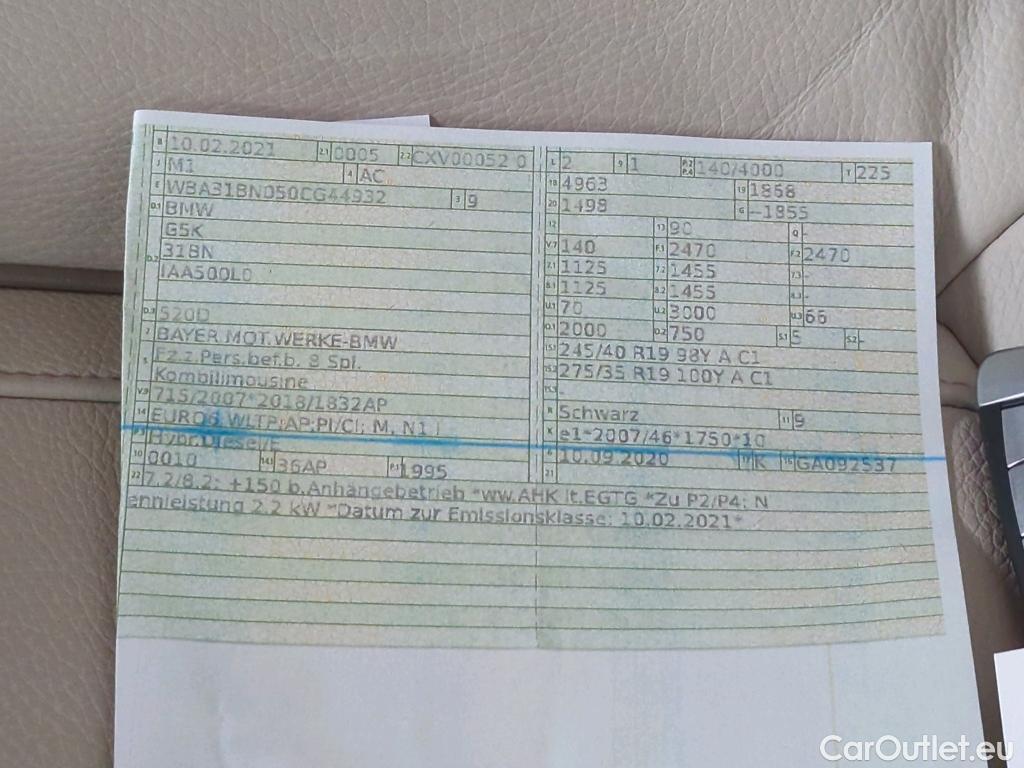 B 10.02.2021 2.1 0005 2.2 CXV00052 0
J M1 4 AC
E WBA31BN050CG44932 3 9
D.1 BMW
G5K
D.2 31BN
IAA500L0
D.3 520D
2 BAYER.MOT.WERKE-BMW
5 Fz.z.Pers.bef.b. 8 Spl.
Kombilimousine
V.9 715/2007*2018/1832AP
14 EURO6 WLTP;AP;PI/CI; M, N1 I
P.3 Hybr.Diesel/E
10 0010 14.1 36AP P.1 1995
22 7.2/8.2: +150 b.Anhängebetrieb *ww.AHK lt.EGTG *Zu P2/P4: N
ennleistung 2.2 kW *Datum zur Emissionsklasse: 10.02.2021*
L 2 9 1 P.2 P.4 140/4000 T 225
18 4963 19 1868
20 1498 G --1855
12 13 90 Q -
V.7 140 F.1 2470 F.2 2470
7.1 1125 7.2 1455 7.3 -
8.1 1125 8.2 1455 8.3 -
U.1 70 U.2 3000 U.3 66
O.1 2000 O.2 750 S.1 5 S.2 -
15.1 245/40 R19 98Y A C1
15.2 275/35 R19 100Y A C1
15.3 -
R Schwarz 11 9
K e1*2007/46*1750*10
6 10.09.2020 17 K 16 GA092537
21
CarOutlet.eu